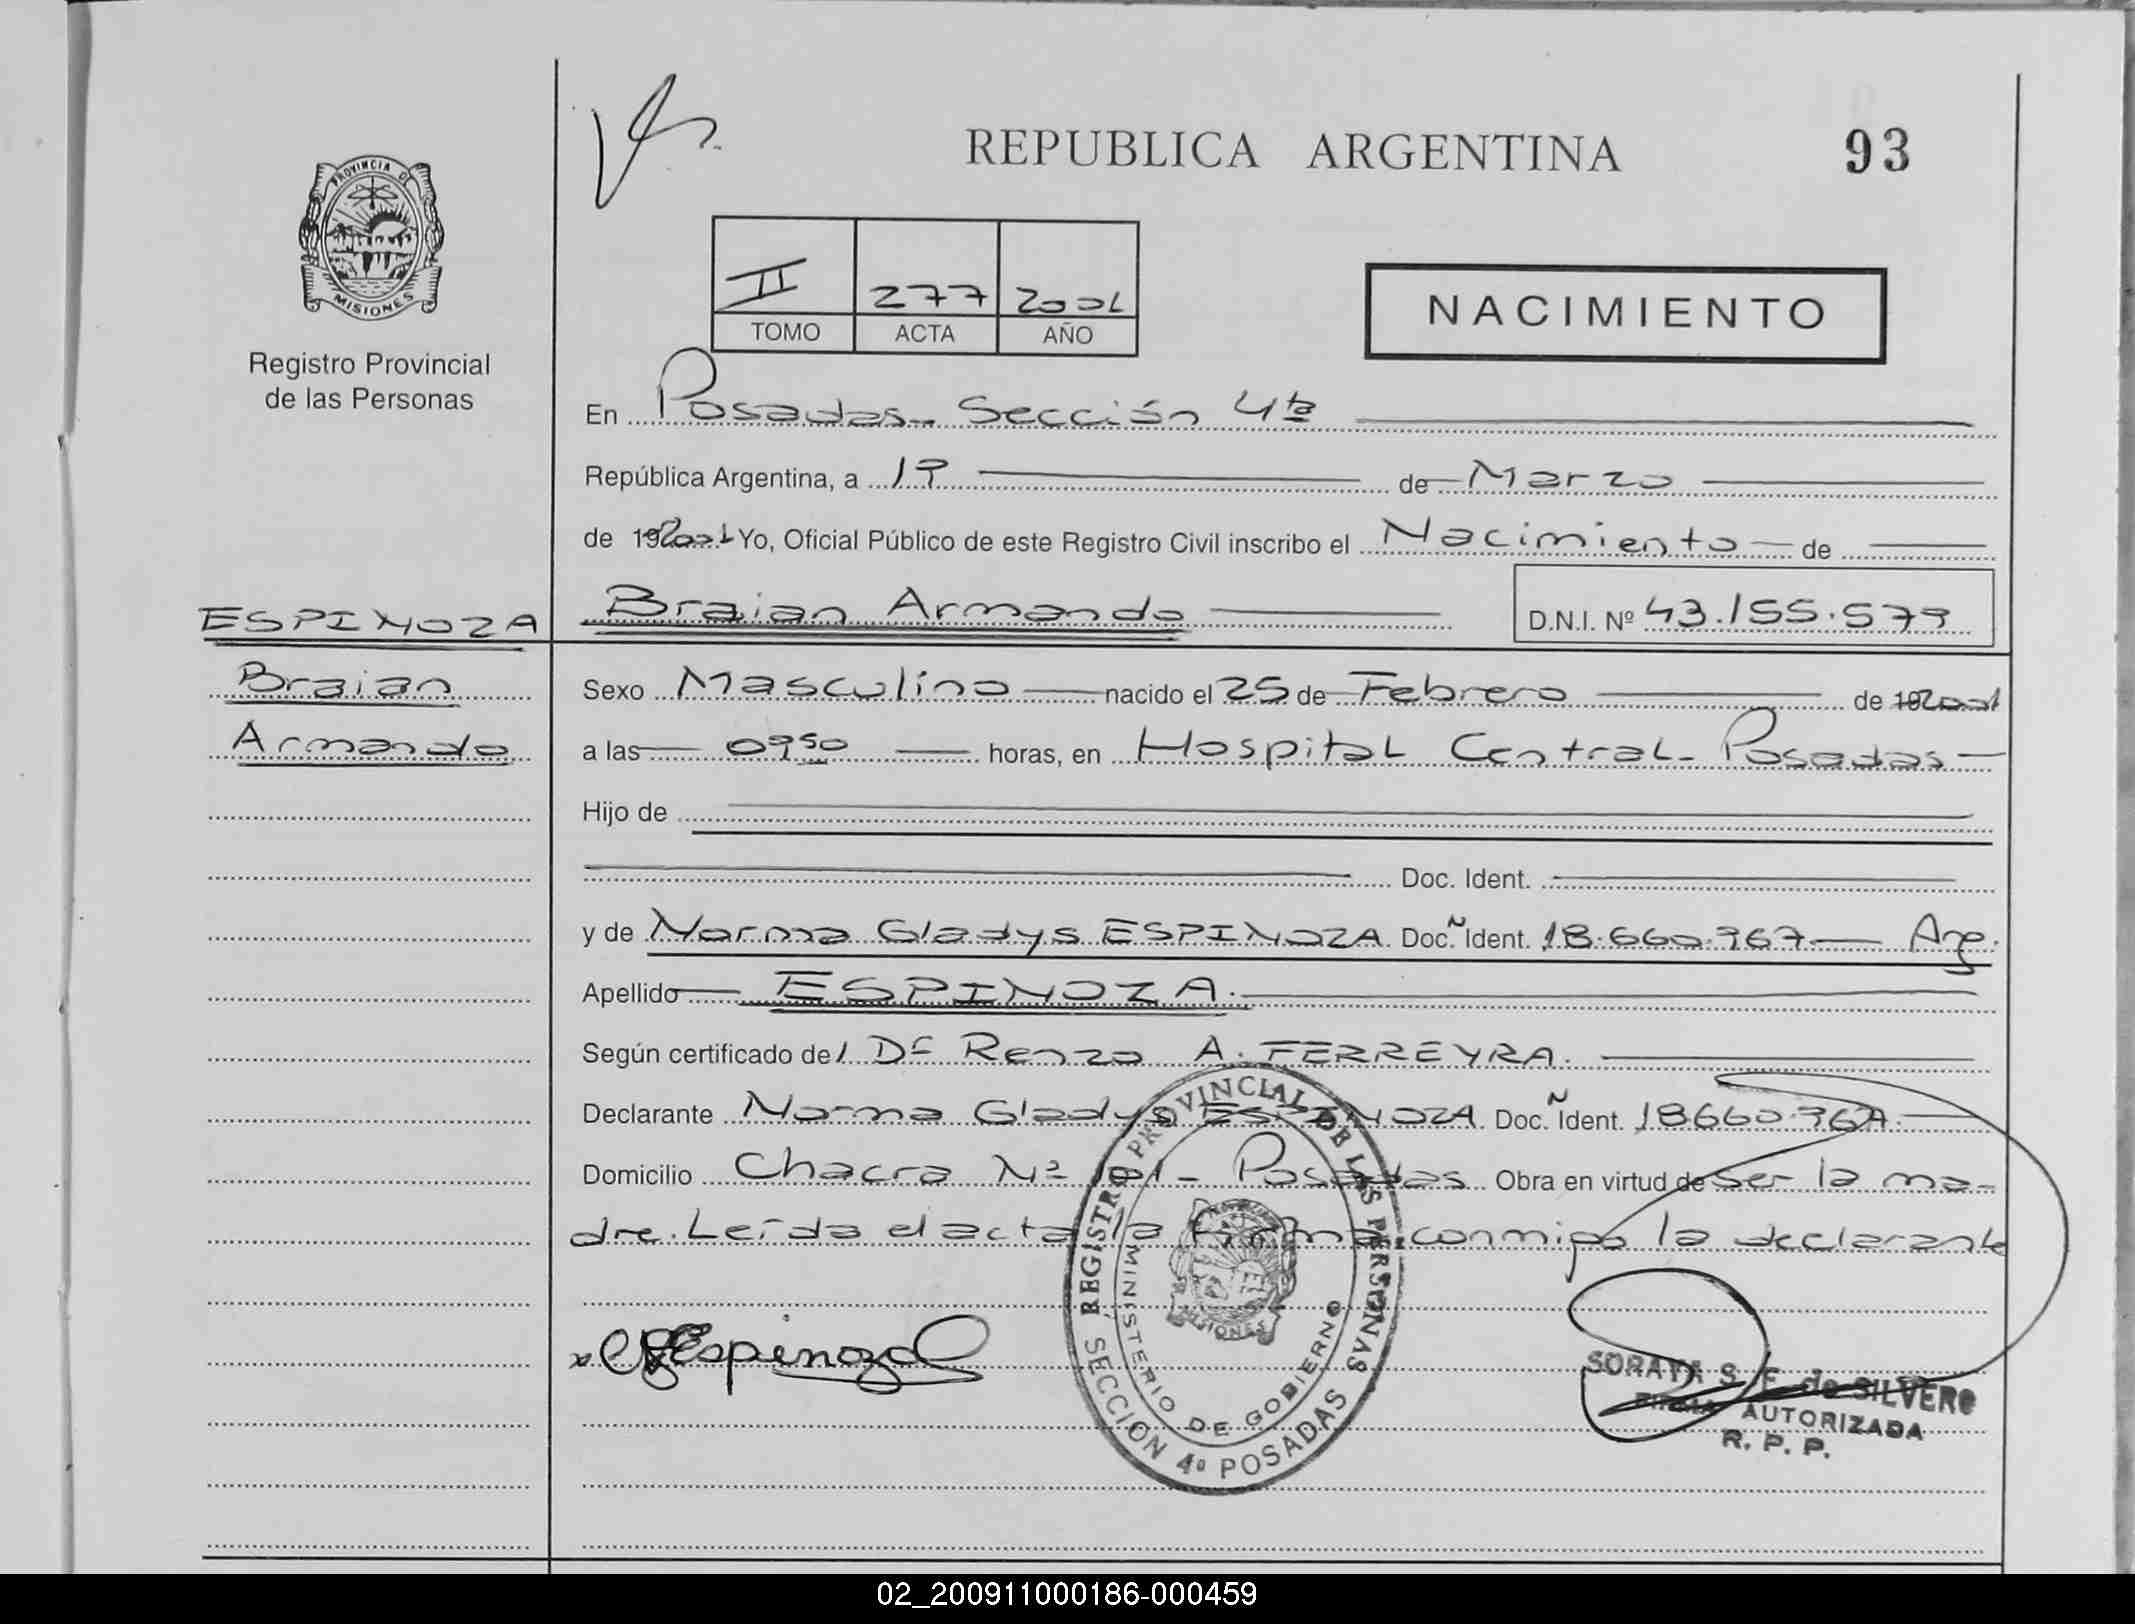 REPUBLICA ARGENTINA 93
PROVINCIA DE
MISIONES
Registro Provincial
de las Personas
II 277 2001
TOMO ACTA AÑO
NACIMIENTO
En Posadas - Sección 4ta
República Argentina, a 19 de Marzo
de 192001 Yo, Oficial Público de este Registro Civil inscribo el Nacimiento de
ESPINOZA Braian Armando D.N.I. Nº 43.155.579
Braian Sexo Masculino nacido el 25 de Febrero de 192001
Armando a las 0950 horas, en Hospital Central - Posadas
Hijo de
Doc. Ident.
y de Norma Gladys ESPINOZA. Doc. Ñ Ident. 18.660.967 Arg.
Apellido ESPINOZA.
Según certificado del Dr Renzo A. FERREYRA.
Declarante Norma Gladys ESPINOZA. Doc. Ñ Ident. 18660.967
Domicilio Chacra Nº 101 - Posadas Obra en virtud de ser la ma-
dre. Leída el acta la firma conmigo la declarante
Espinoza
REGISTRO PROVINCIAL DE LAS PERSONAS
MINISTERIO DE GOBIERNO
MISIONES
SECCION 4ª POSADAS
SORAYA S. F. de SILVERO
FIRMA AUTORIZADA
R. P. P.
02_200911000186-000459